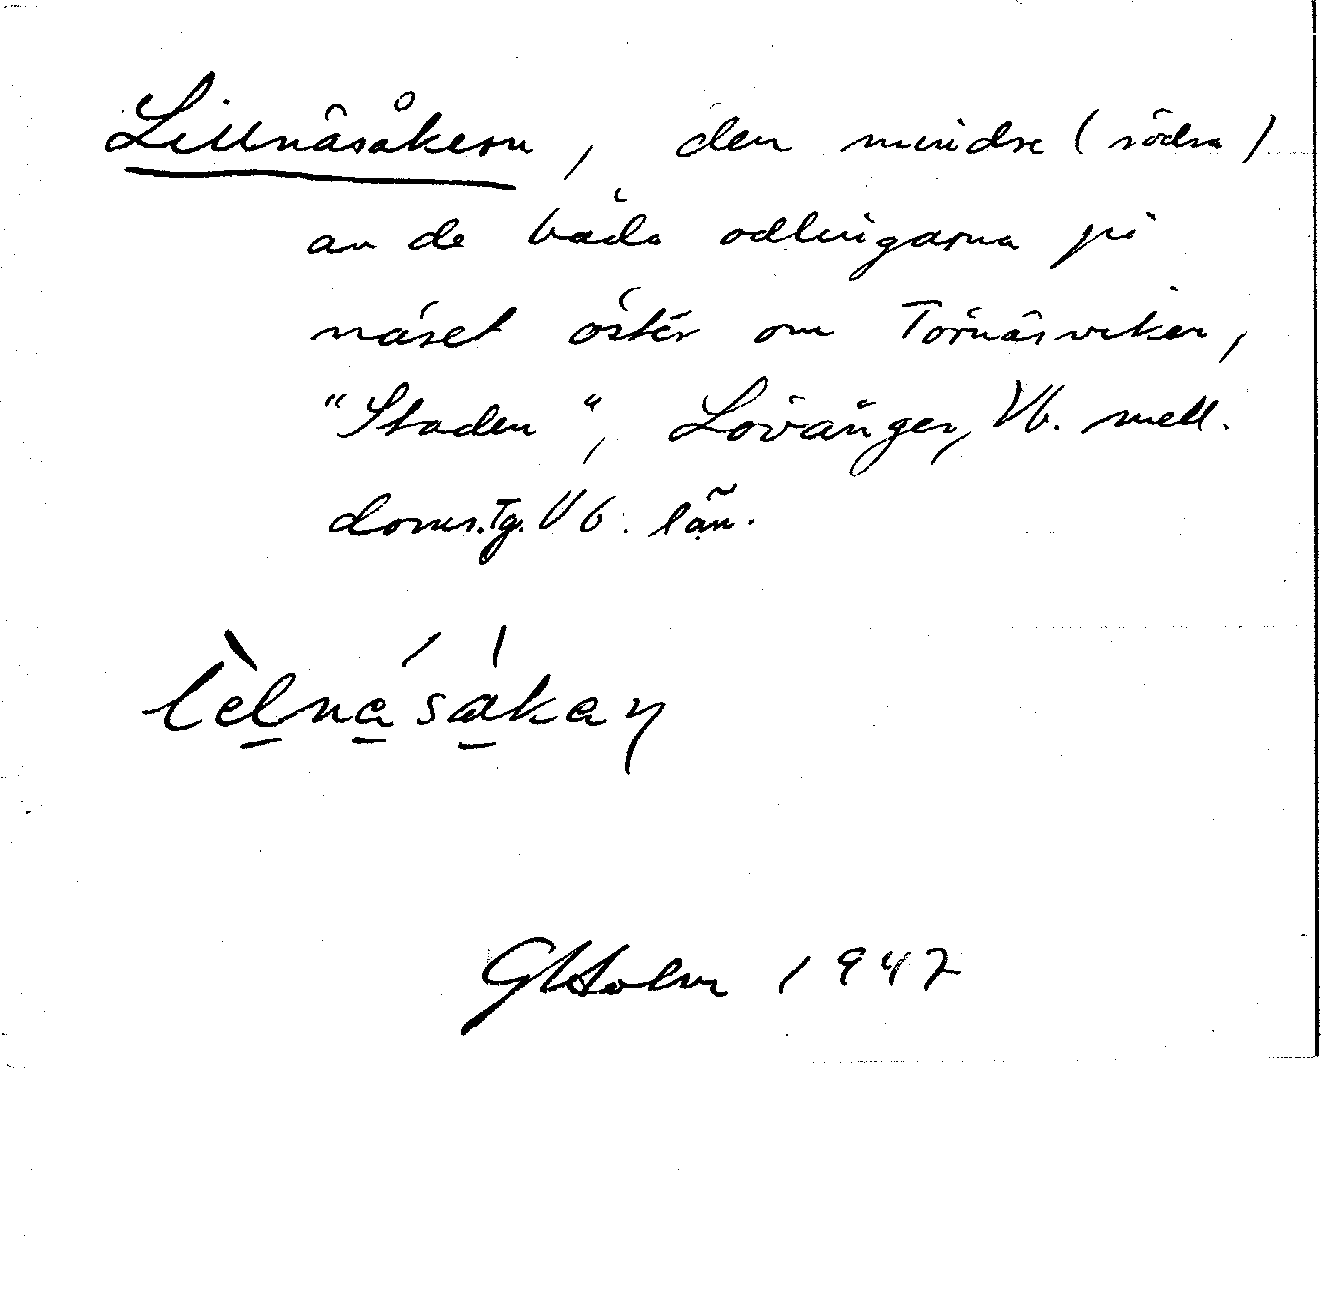 Lillnäsåkern, den mindre (södra)
av de båda odlingarna på
näset öster om Törnäsviken,
"Staden", Lövånger, Vb. mell.
doms.Tg. Vb. län.
GHolm 1947